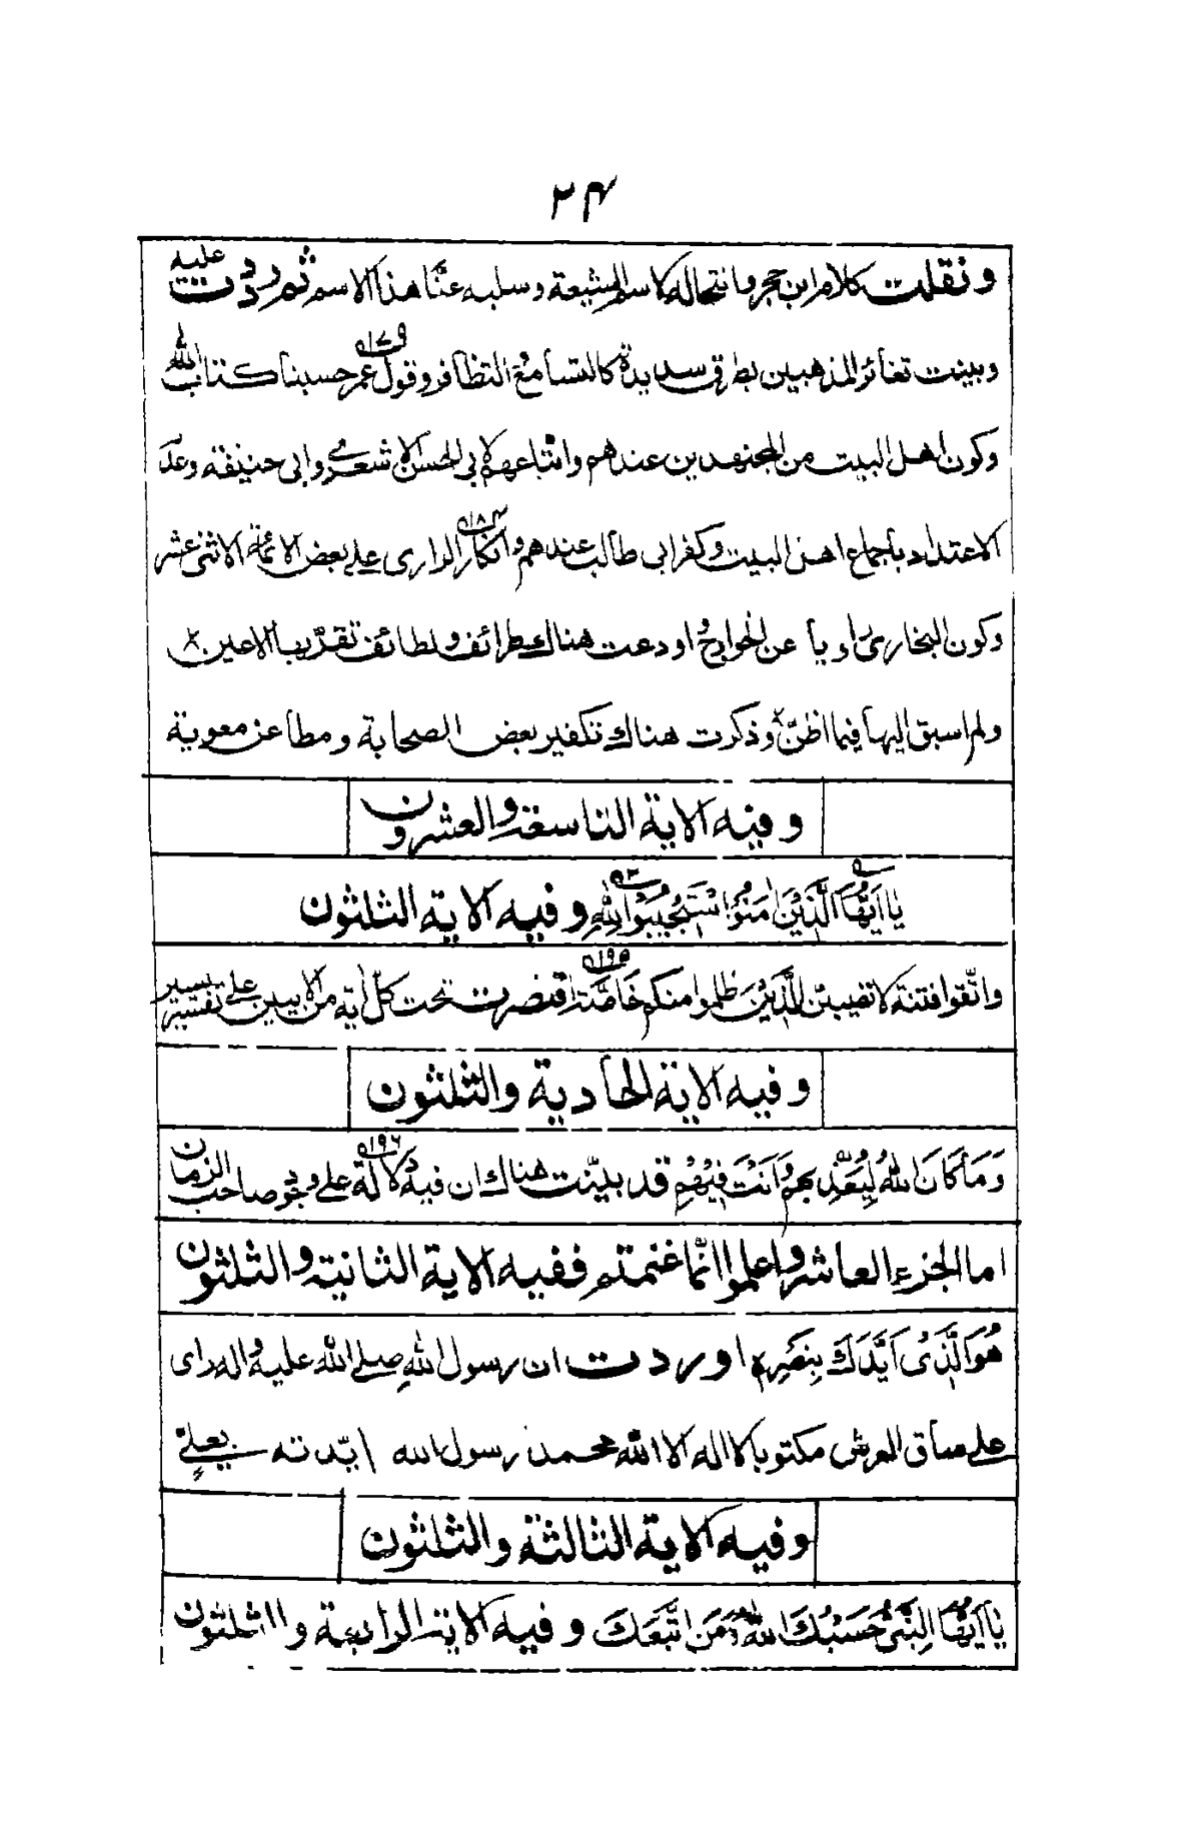 ٢٤
ونقلت كلام ابن حجر وانتحاله لاسم الشيعة وسلبه عنّا هذا الاسم ثم رددت عليه
وبينت تغائر المذهبين بطرق سديدة كالتسامع التظافر وقول عمر حسبنا كتاب الله
وكون اهل البيت من المجتهدين عندهم واتباعهم لابى الحسن الاشعرى وابى حنيفة وعدم
الاعتداد باجماع اهل البيت وكفر ابى طالب عندهم وانكار الرازى على بعض الائمة الاثنى عشر
وكون البخارى راويا عن الخوارج واودعت هناك طرائف ولطائف تقرّ بها الاعين
ولم اسبق اليها فيما اظنّ وذكرت هناك تكفير بعض الصحابة ومطاعن معوية
وفيه الاية التاسعة والعشرون
يا اَيُّهَا الَّذِيْنَ اٰمَنُوْا اسْتَجِيْبُوْا لِلّٰهِ وفيه الاية الثلثون
واتّقوا فتنة لا تصيبن الَّذِيْنَ ظلموا منكم خَاصَّة اقتصرت تحت كلّ اية من الايتين على تفسير يسير
وفيه الاية الحادية والثلثون
وَمَا كَانَ اللّٰهُ لِيُعَذِّبَهُمْ وَاَنْتَ فِيْهِمْ قد بيّنت هناك ان فيه دلالة على وجود صاحب الزمان
اما الجزء العاشر واعلموا انّما غنمتم ففيه الاية الثانية والثلثون
هُوَ الَّذِىْ اَيَّدَكَ بِنَصْرِهٖ اوردت ان رسول الله صلى الله عليه واله راى
على ساق العرش مكتوبا لا اله الا الله محمد رسول الله ايّدته بعلىّ
وفيه الاية الثالثة والثلثون
يٰا اَيُّهَا النَّبِىُّ حَسْبُكَ اللّٰهُ وَمَنِ اتَّبَعَكَ وفيه الاية الرابعة والثلثون